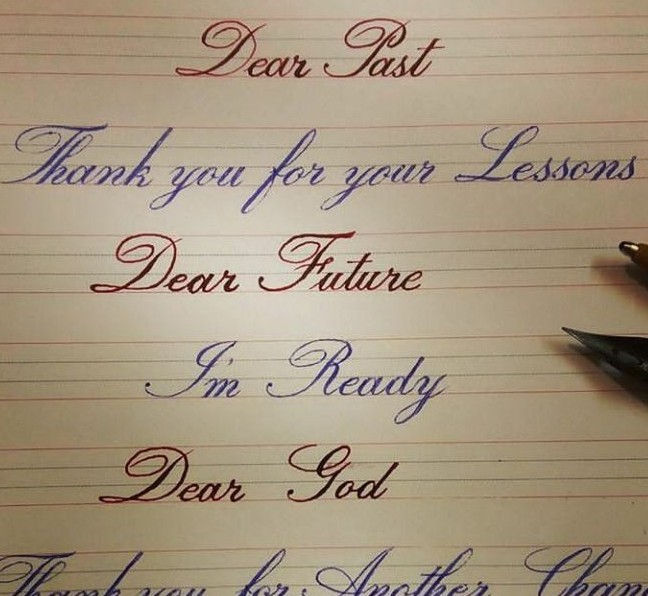 Dear Past
Thank you for your Lessons
Dear Future
I'm Ready
Dear God
Thank you for Another Chan